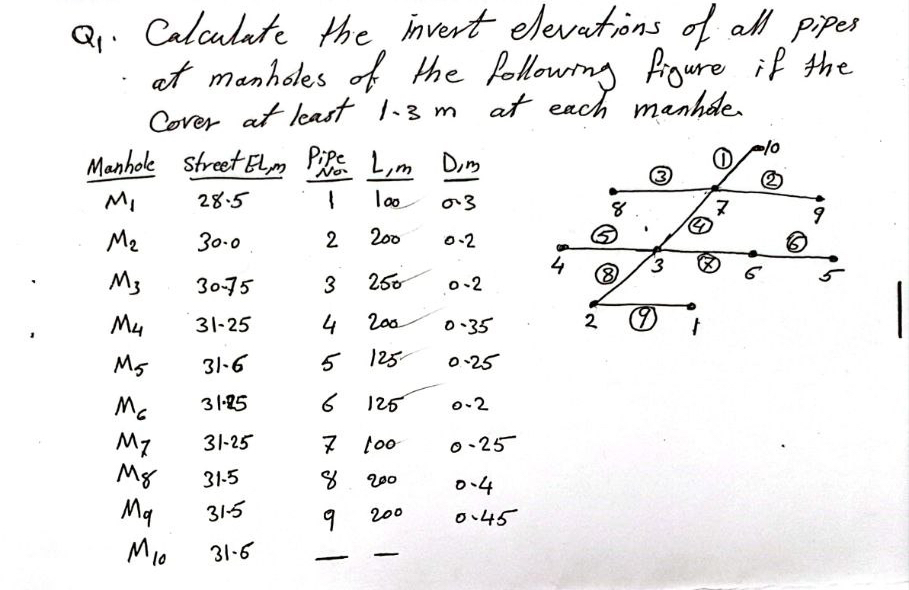 Q1. Calculate the invert elevations of all pipes
at manholes of the following figure if the
Cover at least 1.3 m at each manhole.
Manhole Street El,m Pipe No. L,m D,m
M1 28.5 1 100 0.3
M2 30.0 2 200 0.2
M3 30.75 3 250 0.2
M4 31.25 4 200 0.35
M5 31.6 5 125 0.25
M6 31.25 6 125 0.2
M7 31.25 7 100 0.25
M8 31.5 8 200 0.4
M9 31.5 9 200 0.45
M10 31.6 — —
1 10
3 2
8 7 9
4
5 6
4 3 7 6 5
8
2 9 1